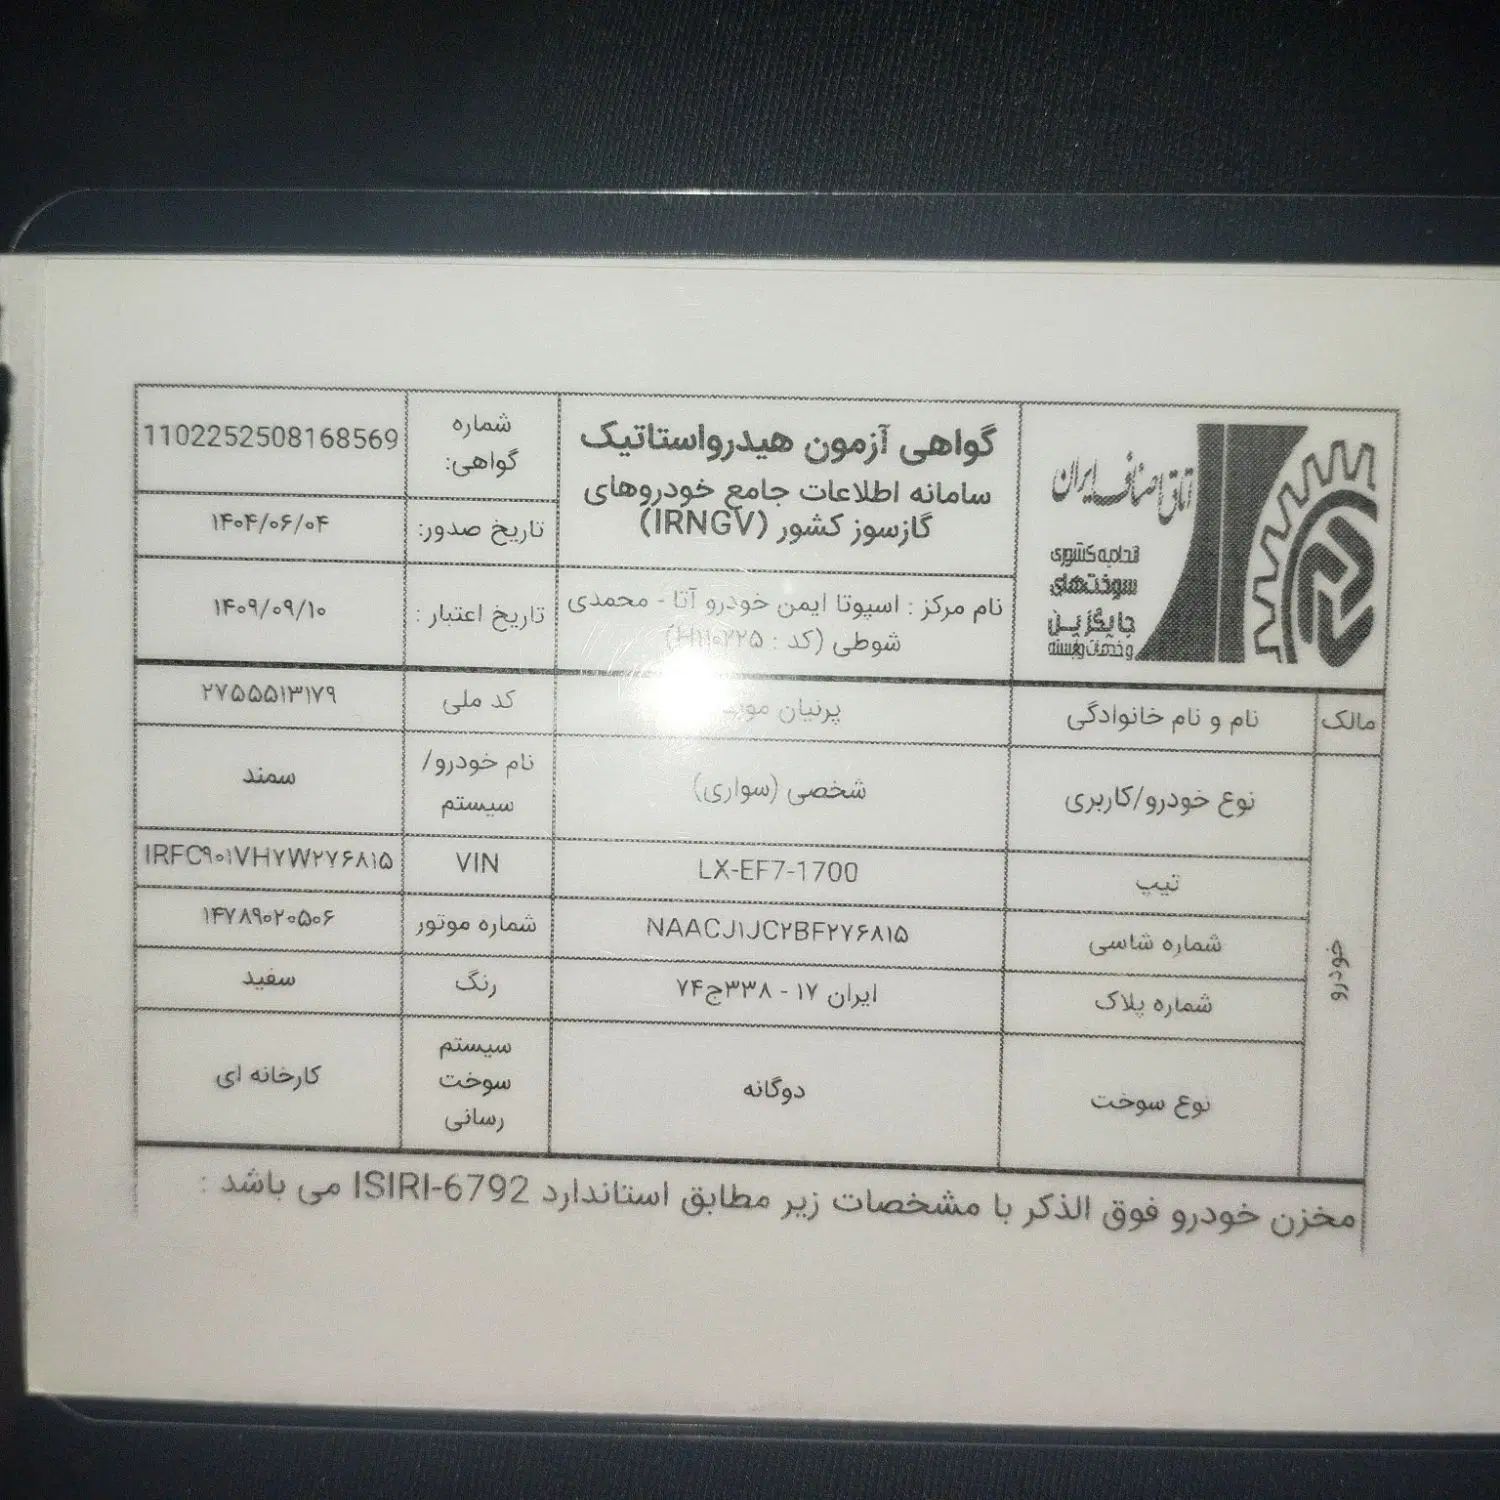 اتاق اصناف ایران
اتحادیه کشوری
سوخت‌های
جایگزین
و خدمات وابسته
گواهی آزمون هیدرواستاتیک
سامانه اطلاعات جامع خودروهای
گازسوز کشور (IRNGV)
شماره گواهی: 1102252508168569
تاریخ صدور: ۱۴۰۴/۰۶/۰۴
نام مرکز : اسپوتا ایمن خودرو آتا - محمدی
شوطی (کد : H۱۱۰۲۲۵)
تاریخ اعتبار : ۱۴۰۹/۰۹/۱۰
مالک
نام و نام خانوادگی پرنیان کد ملی ۲۷۵۵۵۱۳۱۷۹
خودرو
نوع خودرو/کاربری شخصی (سواری) نام خودرو/سیستم سمند
تیپ LX-EF7-1700 VIN IRFC۹۰۱VH۷W۲۷۶۸۱۵
شماره شاسی NAACJ۱JC۲BF۲۷۶۸۱۵ شماره موتور ۱۴۷۸۹۰۲۰۵۰۶
شماره پلاک ایران ۱۷ - ۳۳۸ج۷۴ رنگ سفید
نوع سوخت دوگانه سیستم سوخت رسانی کارخانه ای
مخزن خودرو فوق الذکر با مشخصات زیر مطابق استاندارد ISIRI-6792 می باشد :